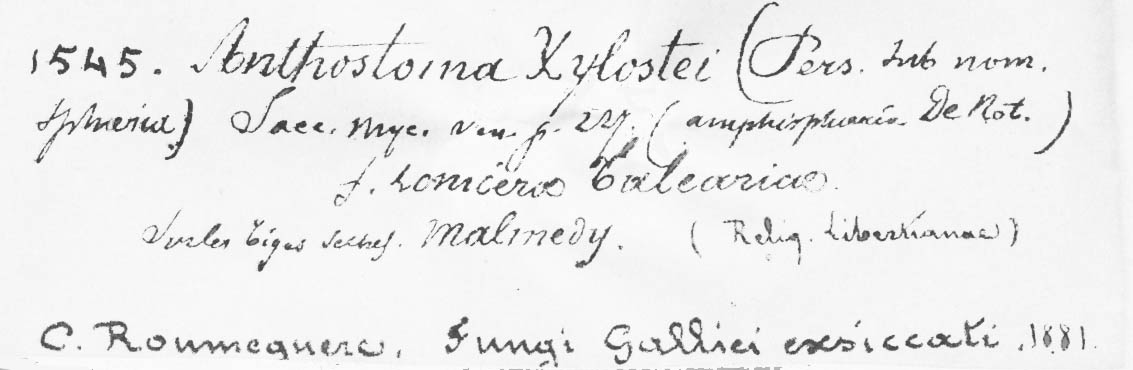 1545. Anthostoma Xylostei (Pers. sub nom.
Sphæria) Sacc. Myc. Ven. p. 227. (amphisphaeria De Not.)
f. Loniceræ Balearicæ.
Sur les tiges seches. Malmedy. (Reliq. Libertianae)
C. Roumeguere. Fungi Gallici exsiccati. 1881.